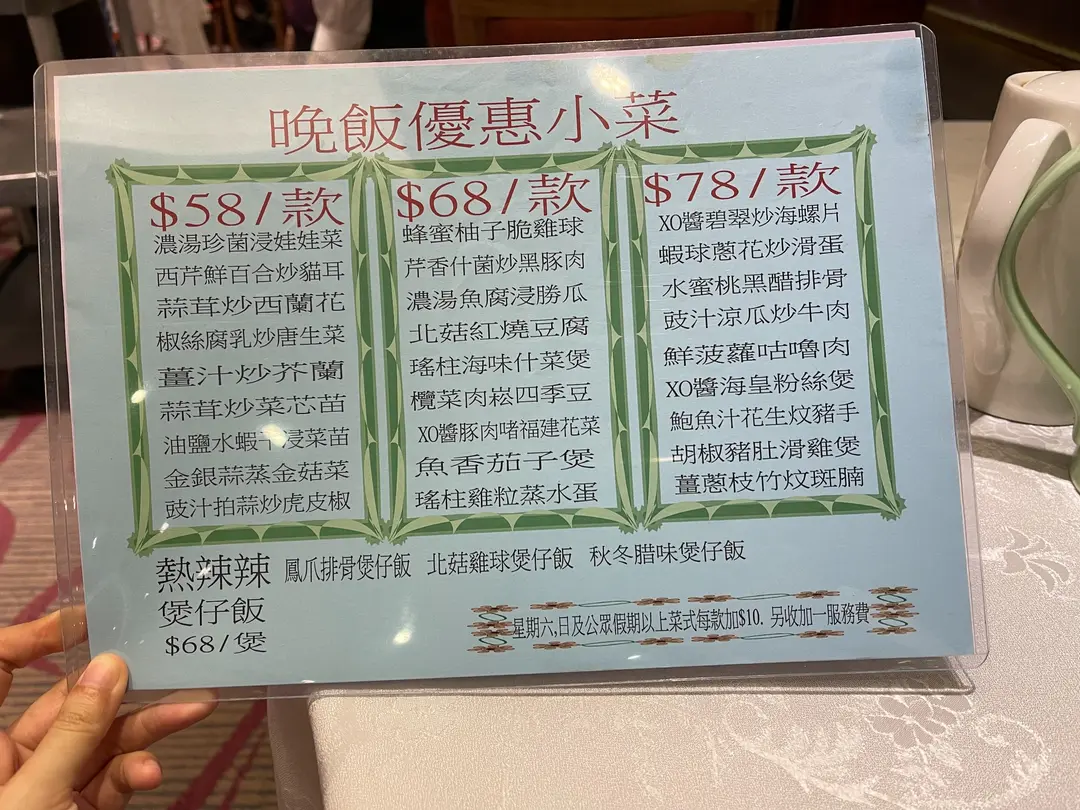 晚飯優惠小菜
$58/款
濃湯珍菌浸娃娃菜
西芹鮮百合炒貓耳
蒜茸炒西蘭花
椒絲腐乳炒唐生菜
薑汁炒芥蘭
蒜茸炒菜芯苗
油鹽水蝦干浸菜苗
金銀蒜蒸金菇菜
豉汁拍蒜炒虎皮椒
$68/款
蜂蜜柚子脆雞球
芹香什菌炒黑豚肉
濃湯魚腐浸勝瓜
北菇紅燒豆腐
瑤柱海味什菜煲
欖菜肉崧四季豆
XO醬豚肉啫福建花菜
魚香茄子煲
瑤柱雞粒蒸水蛋
$78/款
XO醬碧翠炒海螺片
蝦球蔥花炒滑蛋
水蜜桃黑醋排骨
豉汁涼瓜炒牛肉
鮮菠蘿咕嚕肉
XO醬海皇粉絲煲
鮑魚汁花生炆豬手
胡椒豬肚滑雞煲
薑蔥枝竹炆斑腩
熱辣辣 鳳爪排骨煲仔飯 北菇雞球煲仔飯 秋冬腊味煲仔飯
煲仔飯
$68/煲
星期六,日及公眾假期以上菜式每款加$10. 另收加一服務費